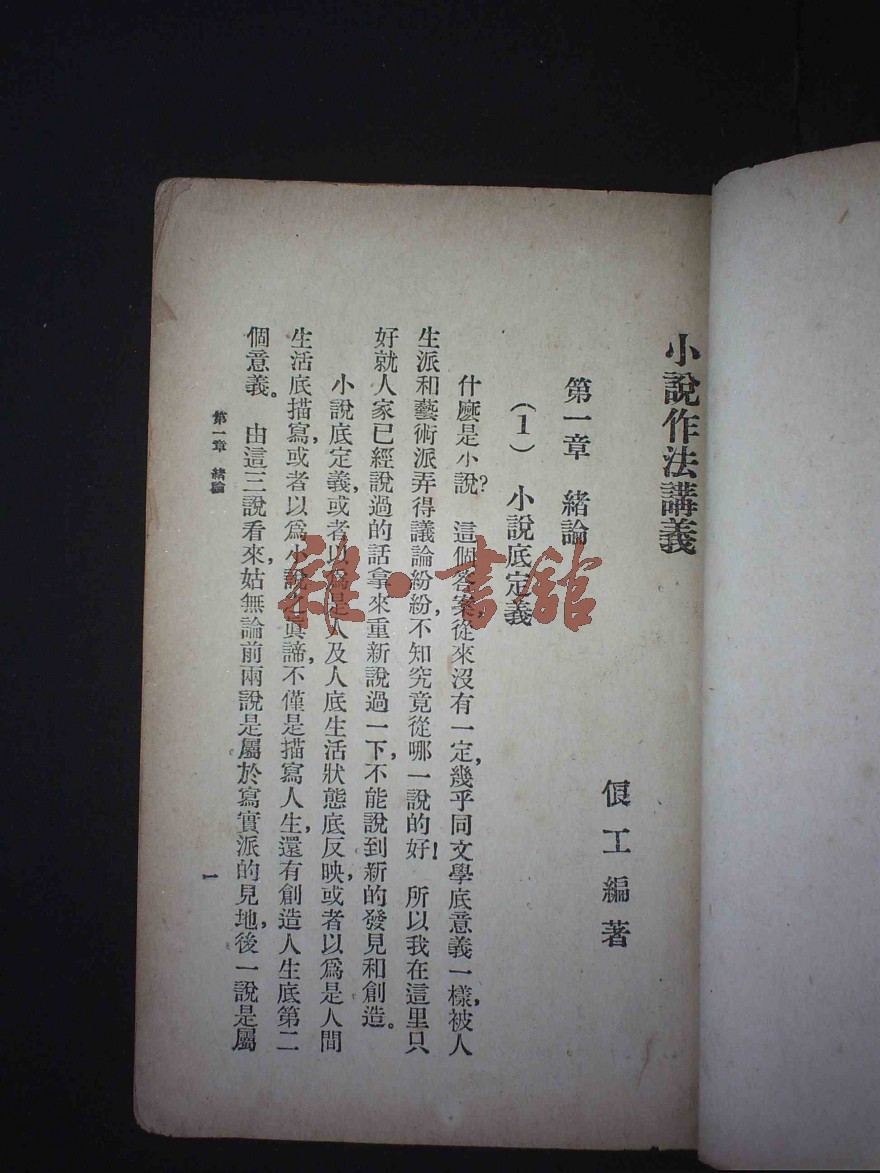 小說作法講義
俍工編著
第一章　緒論
（1）　小說底定義
什麼是小說？　這個答案，從來沒有一定，幾乎同文學底意義一樣，被人
生派和藝術派弄得議論紛紛，不知究竟從哪一說的好！　所以我在這里只
好就人家已經說過的話拿來重新說過一下，不能說到新的發見和創造。
小說底定義，或者以爲是人及人底生活狀態底反映，或者以爲是人間
生活底描寫，或者以爲小說之眞諦，不僅是描寫人生，還有創造人生底第二
個意義。　由這三說看來，姑無論前兩說是屬於寫實派的見地，後一說是屬
第一章　緒論
一
雜·書館